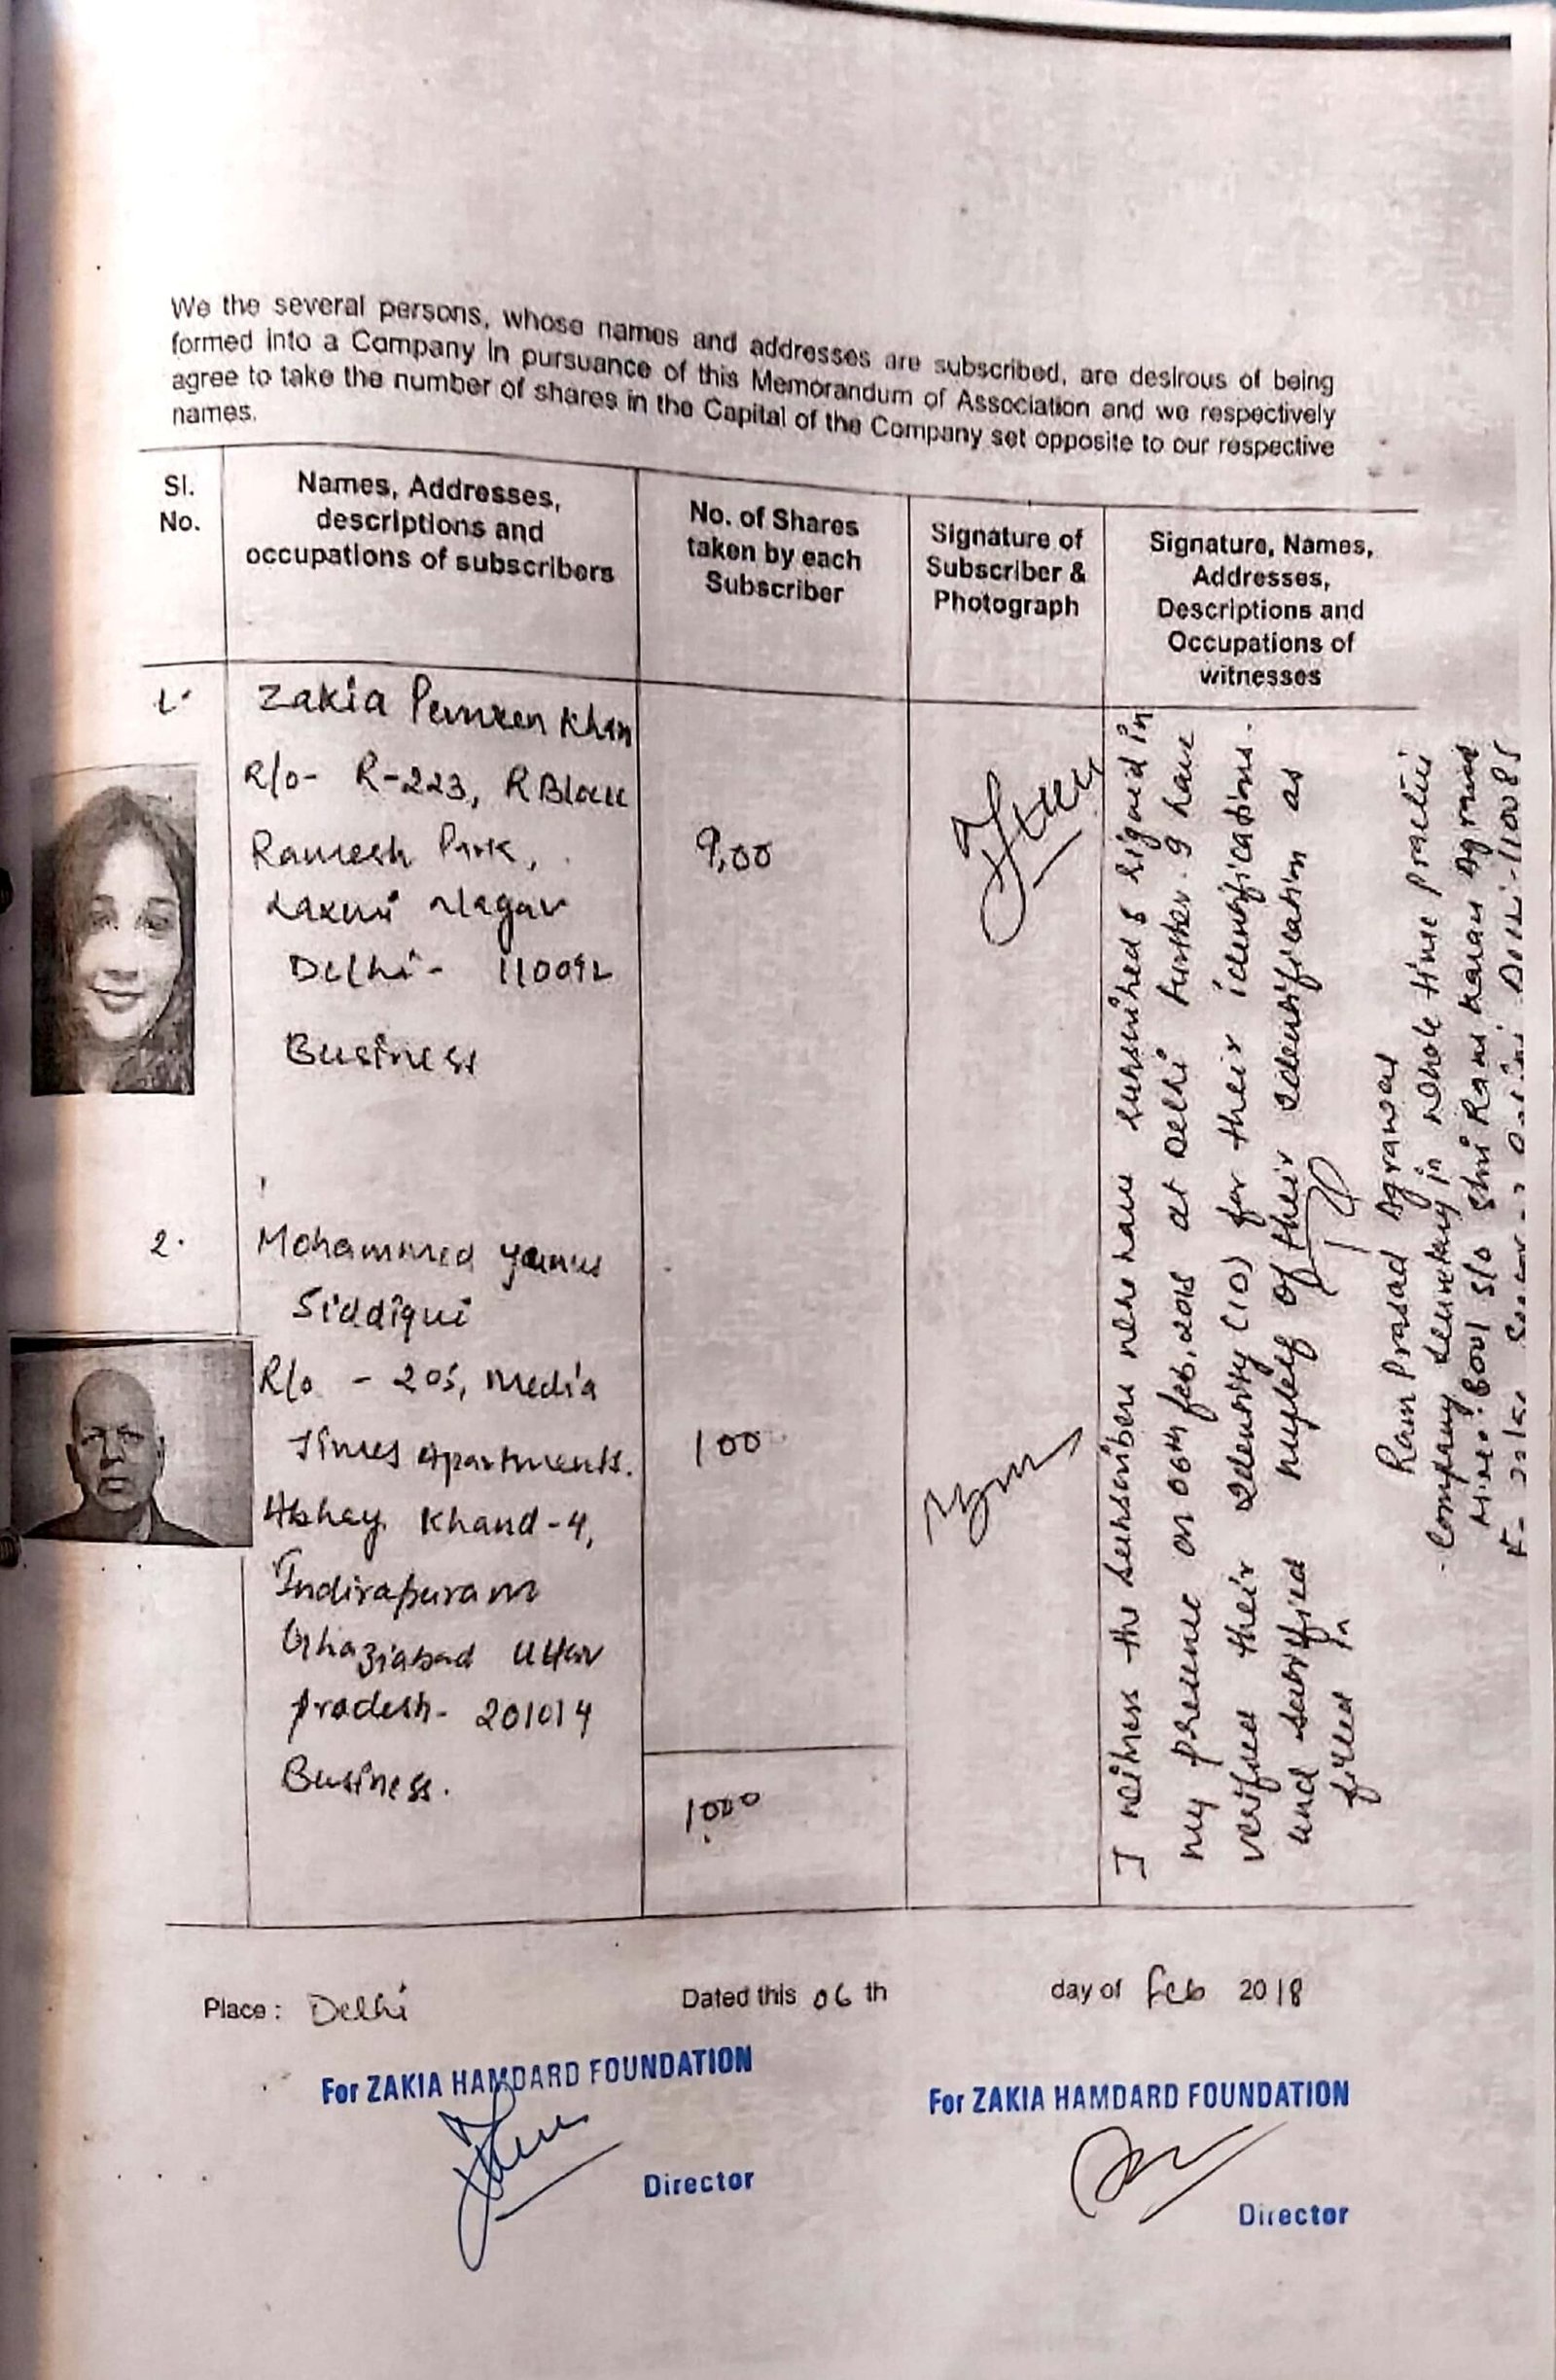 We the several persons, whose names and addresses are subscribed, are desirous of being
formed into a Company in pursuance of this Memorandum of Association and we respectively
agree to take the number of shares in the Capital of the Company set opposite to our respective
names.
Sl.
No.
Names, Addresses,
descriptions and
occupations of subscribers
No. of Shares
taken by each
Subscriber
Signature of
Subscriber &
Photograph
Signature, Names,
Addresses,
Descriptions and
Occupations of
witnesses
1.
Zakia Khan
R/o- R-223, R Block
Ramesh Park,
Laxmi Nagar
Delhi- 110092
Business
9,00
2.
Mohammed Yunus
Siddiqui
R/o - 205, Media
Times Apartments.
Abhay Khand-4,
Indirapuram
Ghaziabad Uttar
Pradesh- 201014
Business.
100
1,000
I witness the subscribers who have subscribed & signed in
my presence on 06th feb, 2018 at Delhi further I have
verified their Identity (ID) for their identifications.
and satisfied myself of their Identification as
filled in
Ram Prasad Agrawal
Company Secretary in whole time practice
S/o Shri Ram Karan Agrawal
Delhi-110085
Place : Delhi
Dated this 06 th
day of Feb 2018
For ZAKIA HAMDARD FOUNDATION
Director
For ZAKIA HAMDARD FOUNDATION
Director